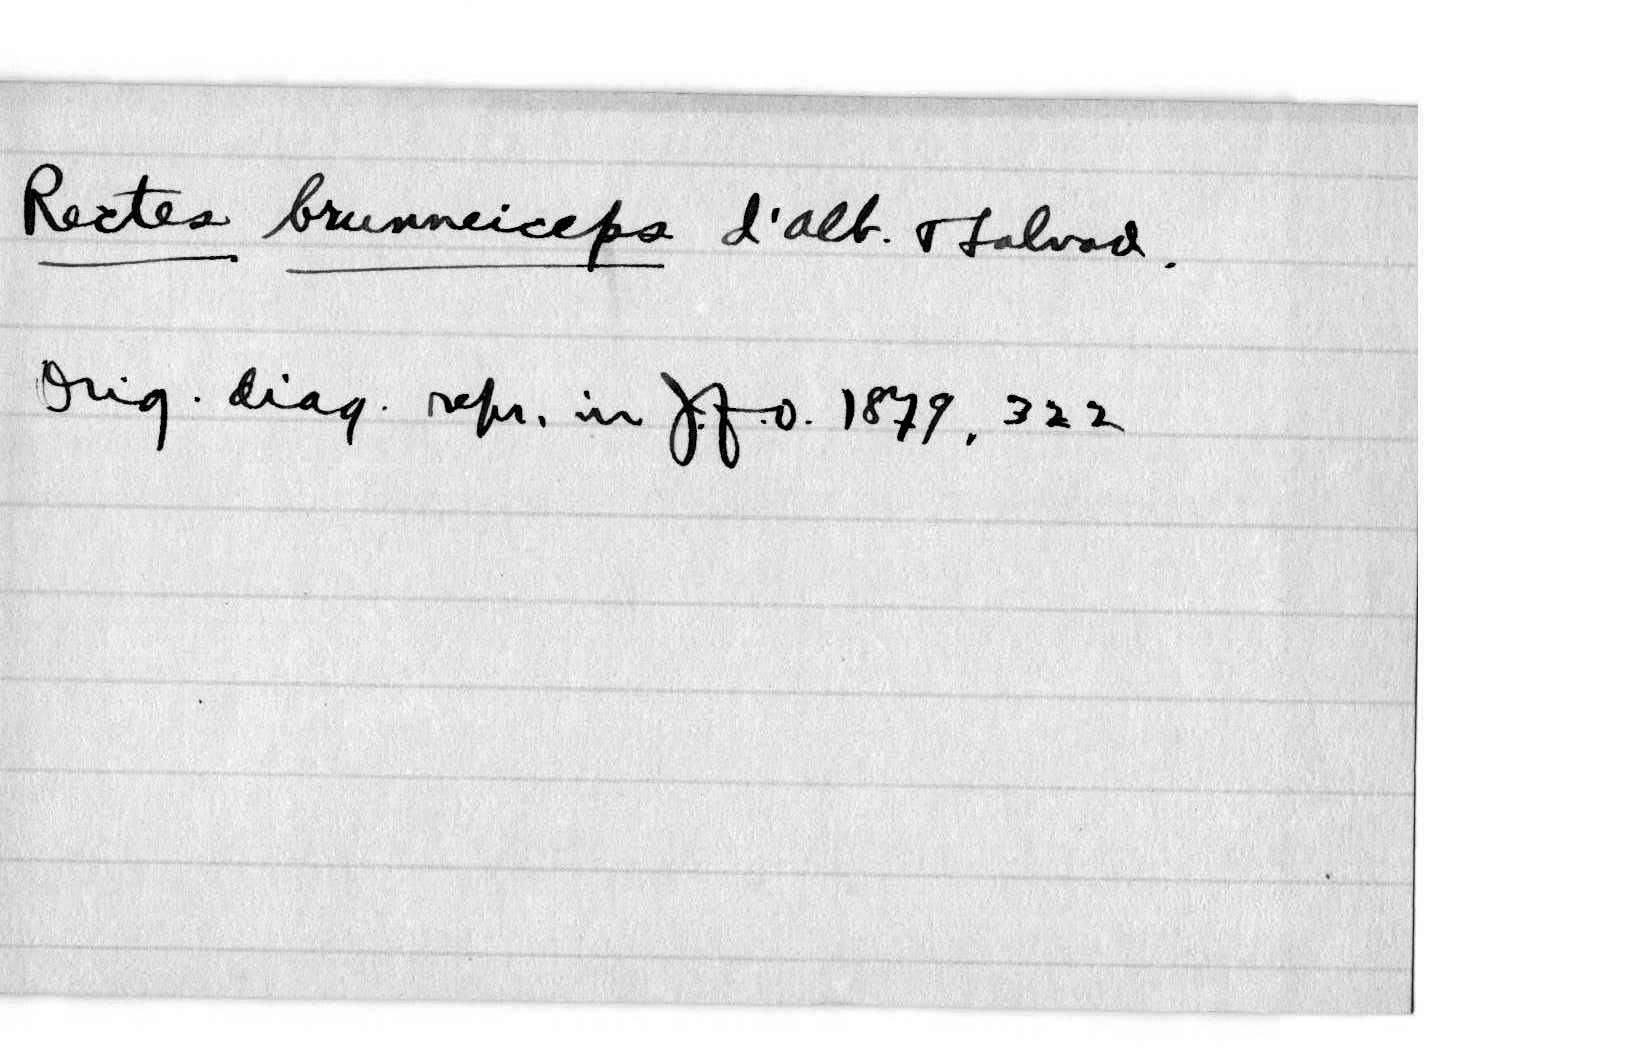 Rectes brunneiceps d'Alb. & Salvad.
Orig. diag. repr. in J.f.O. 1879, 322